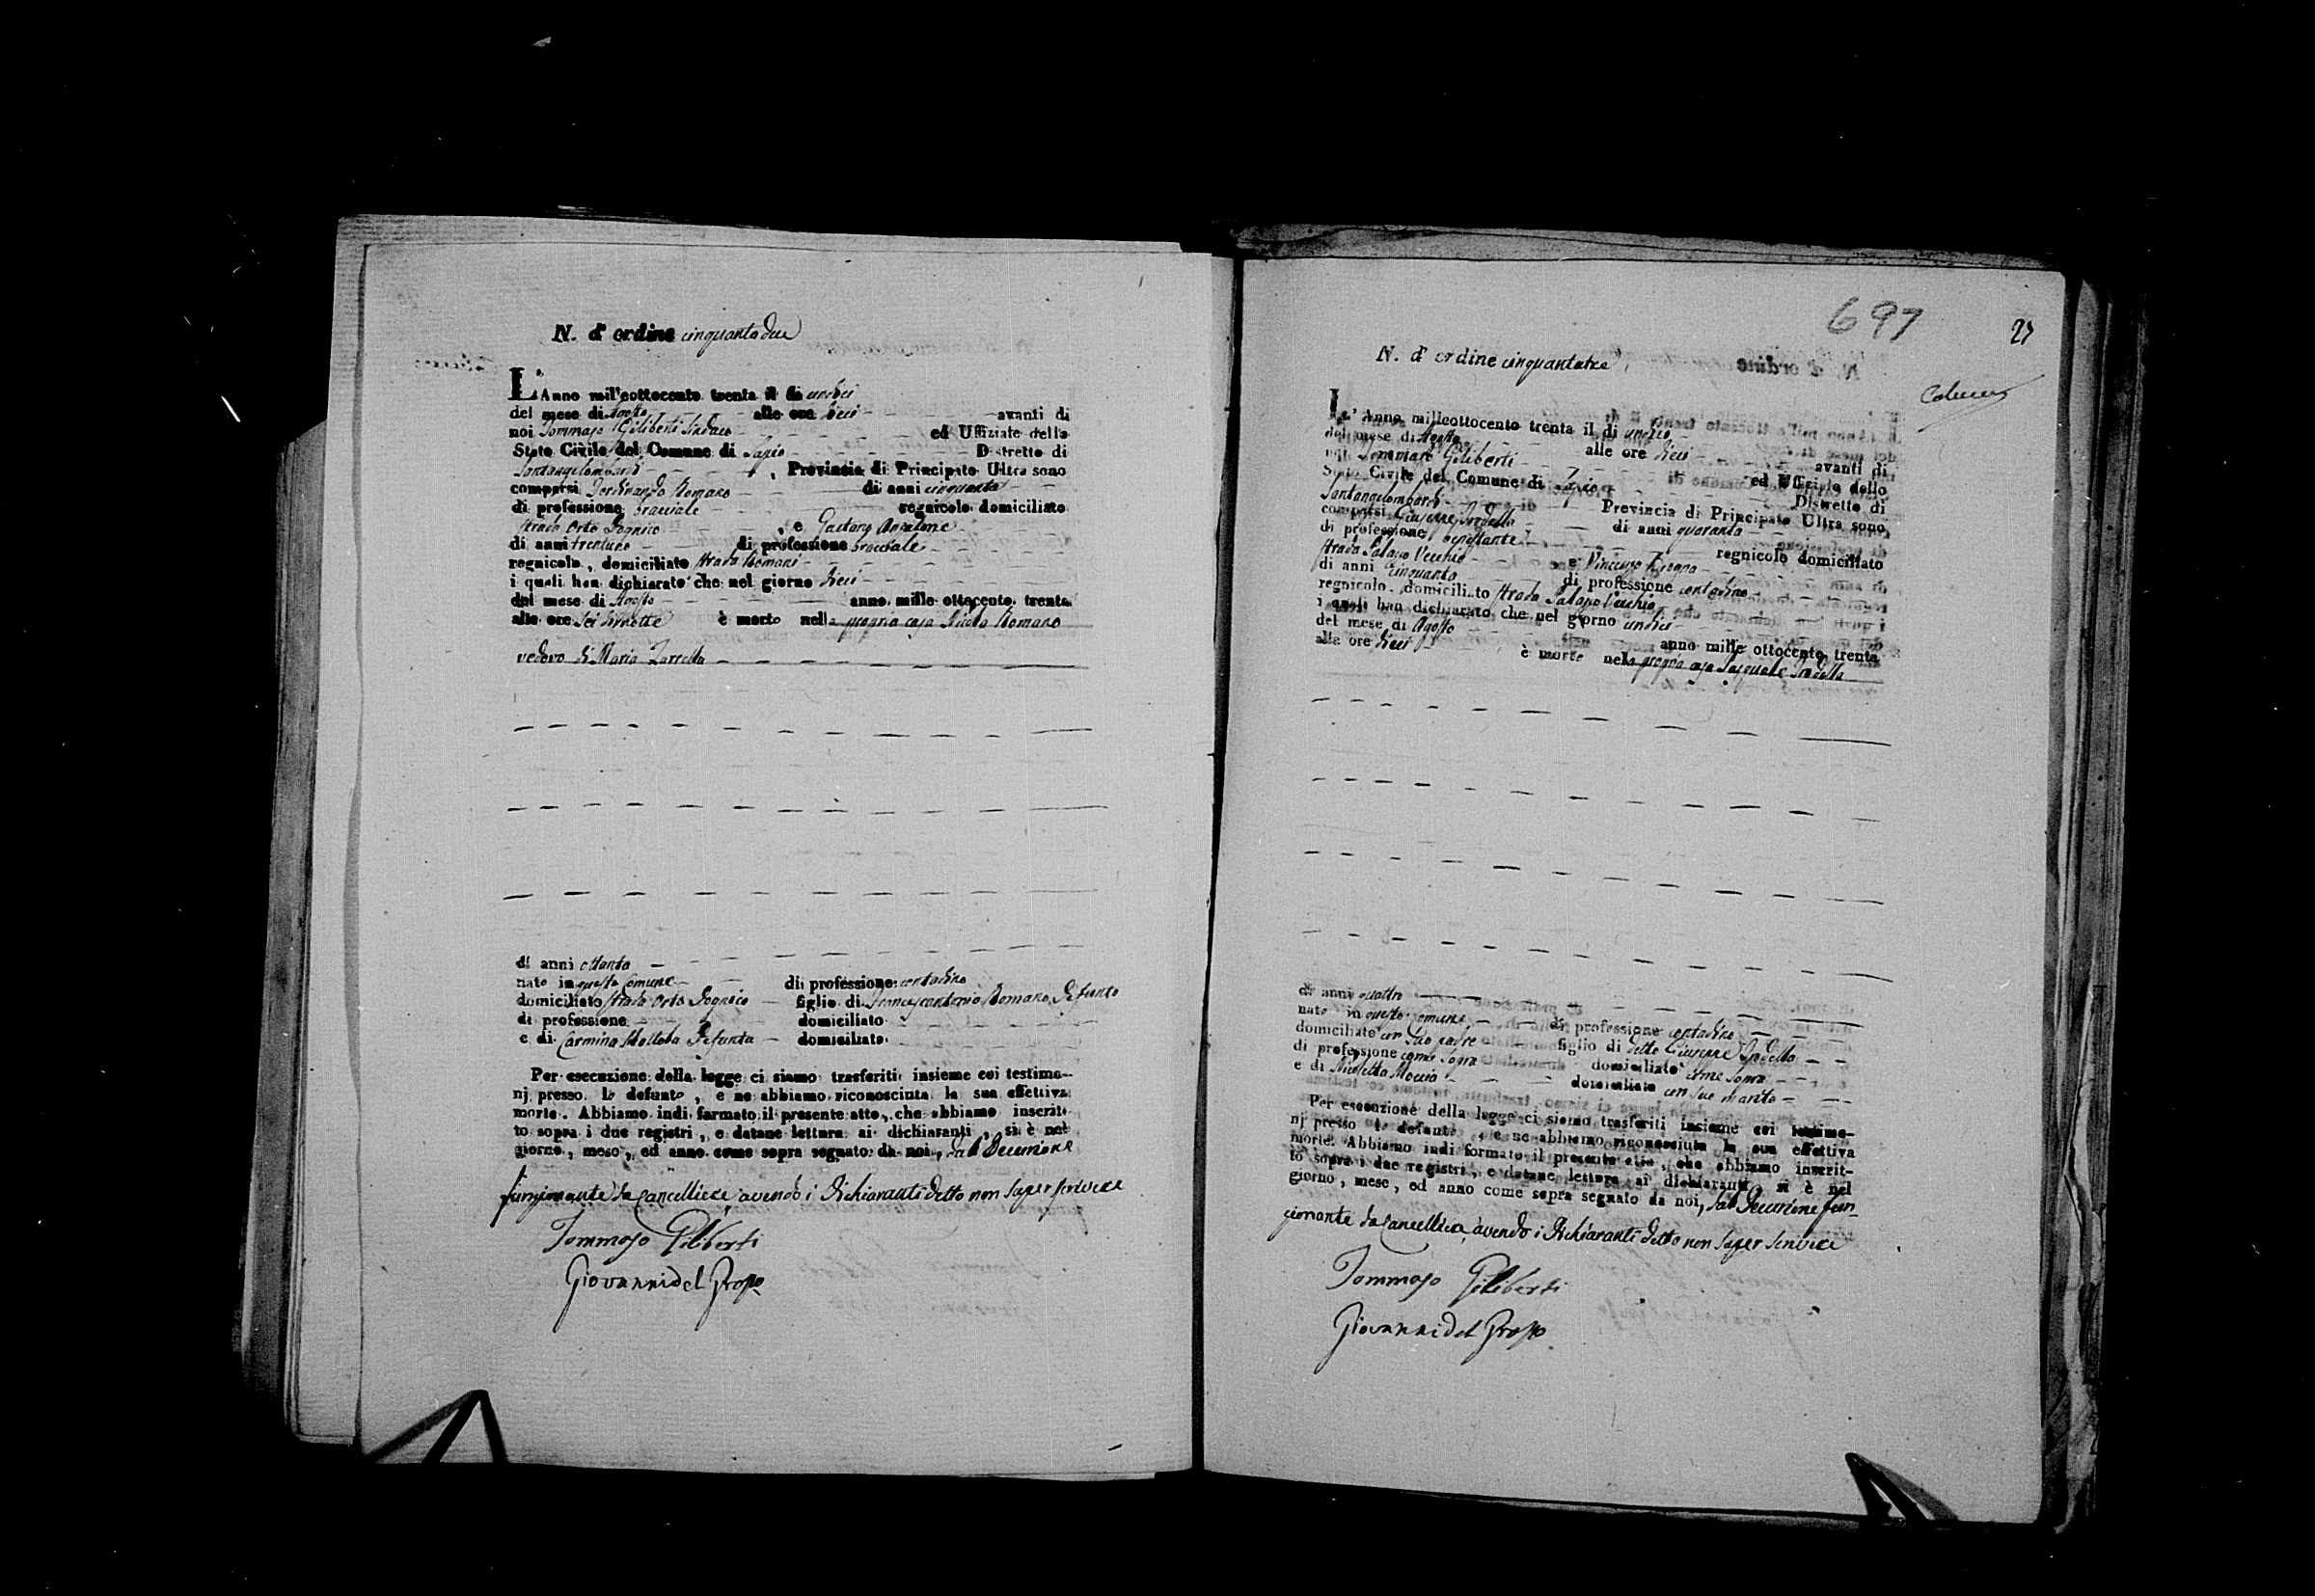 N. d' ordine cinquantadue
L'Anno mil'eottocento trenta il di undici
del mese di Agosto alle ore dieci avanti di
noi Tommaso Giliberti Sindaco ed Uffiziale dello
Stato Civile del Comune di Distretto di
Santangelombardi , Provincia di Principato Ultra sono
comparsi Ferdinando Romano di anni cinquanta
di professione bracciale regnicolo domiciliato
strada Orto , e Gaetano
di anni trentuno di professione bracciale
regnicolo, domiciliato strada Romani
i quali han dichiarato che nel giorno dieci
del mese di Agosto anno mille ottocento trenta
alle ore sei di notte è morto nella propria casa Nicola Romano
vedovo di Maria Zarrella
di anni ottanta
nato in questo Comune di professione contadino
domiciliato strada Orto figlio di Francescantonio Romano Defunto
di professione domiciliato
e di Carmina Defunta domiciliato
Per esecuzione della legge ci siamo trasferiti insieme coi testimo-
nj presso lo defunto, e ne abbiamo riconosciuta la sua effettiva
morte. Abbiamo indi formato il presente atto, che abbiamo inscrit-
to sopra i due registri, e datane lettura ai dichiaranti, si è nel
giorno, mese, ed anno come sopra segnato da noi, dal Decurione
funzionante da Cancelliere avendo i Dichiaranti detto non saper scrivere
Tommaso Giliberti
Giovanni del Grosso
697
27
N. d' ordine cinquantatre
L' Anno milleottocento trenta il di undici
del mese di Agosto alle ore dieci avanti di
noi Tommaso Giliberti ed Uffiziale dello
Stato Civile del Comune di Distretto di
Santangelombardi Provincia di Principato Ultra sono
comparsi Giuseppe Iradella di anni quaranta
di professione benestante regnicolo domiciliato
strada Palazzo Vecchio e Vincenzo
di anni cinquanta di professione contadino
regnicolo domiciliato strada Palazzo Vecchio
i quali han dichiarato che nel giorno undici
del mese di Agosto anno mille ottocento trenta
alle ore dieci è morto nella propria casa Pasquale Iradella
di anni quattro
nato in questo comune di professione contadino
domiciliato con suo padre figlio di detto Giuseppe Iradella
di professione come sopra domiciliato come sopra
e di Nicoletta Moccia domiciliata con suo marito
Per esecuzione della legge ci siamo trasferiti insieme coi testimo-
nj presso lo defunto, e ne abbiamo riconosciuta la sua effettiva
morte. Abbiamo indi formato il presente atto, che abbiamo inscrit-
to sopra i due registri, e datane lettura ai dichiaranti si è nel
giorno, mese, ed anno come sopra segnato da noi, dal Decurione fun-
zionante da Cancelliere avendo i Dichiaranti detto non saper scrivere
Tommaso Giliberti
Giovanni del Grosso